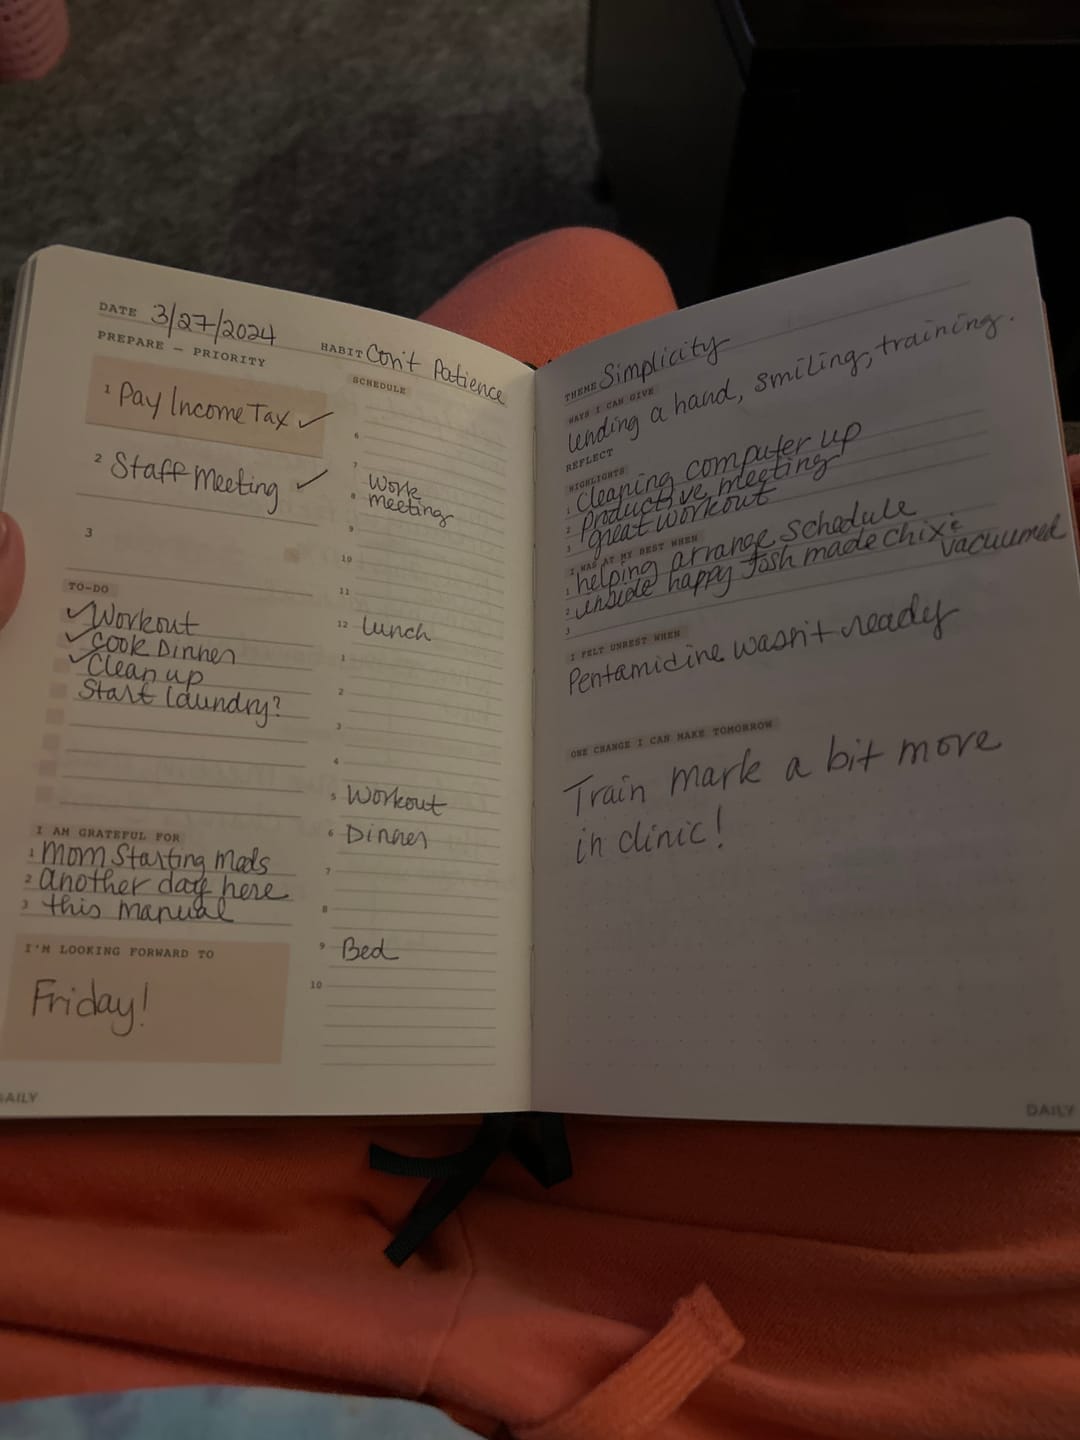 DATE 3/27/2024
HABIT Con't Patience
PREPARE — PRIORITY
1 Pay Income Tax ✓
2 Staff Meeting ✓
3
TO-DO
✓ Workout
✓ Cook Dinner
✓ Clean up
Start laundry?
I AM GRATEFUL FOR
1 Mom Starting Meds
2 another day here
3 this manual
I'M LOOKING FORWARD TO
Friday!
DAILY
SCHEDULE
6
7
Work
8 meeting
9
10
11
12 Lunch
1
2
3
4
5 Workout
6 Dinner
7
8
9 Bed
10
THEME Simplicity
WAYS I CAN GIVE
lending a hand, smiling, training.
REFLECT
HIGHLIGHTS
1 Cleaning computer up
2 Productive meeting
3 great workout
I WAS AT MY BEST WHEN
1 helping arrange schedule
2 inside happy Josh made chix &
vacuumed
3
I FELT UNREST WHEN
Pentamidine wasn't ready
ONE CHANGE I CAN MAKE TOMORROW
Train mark a bit more
in clinic!
DAILY